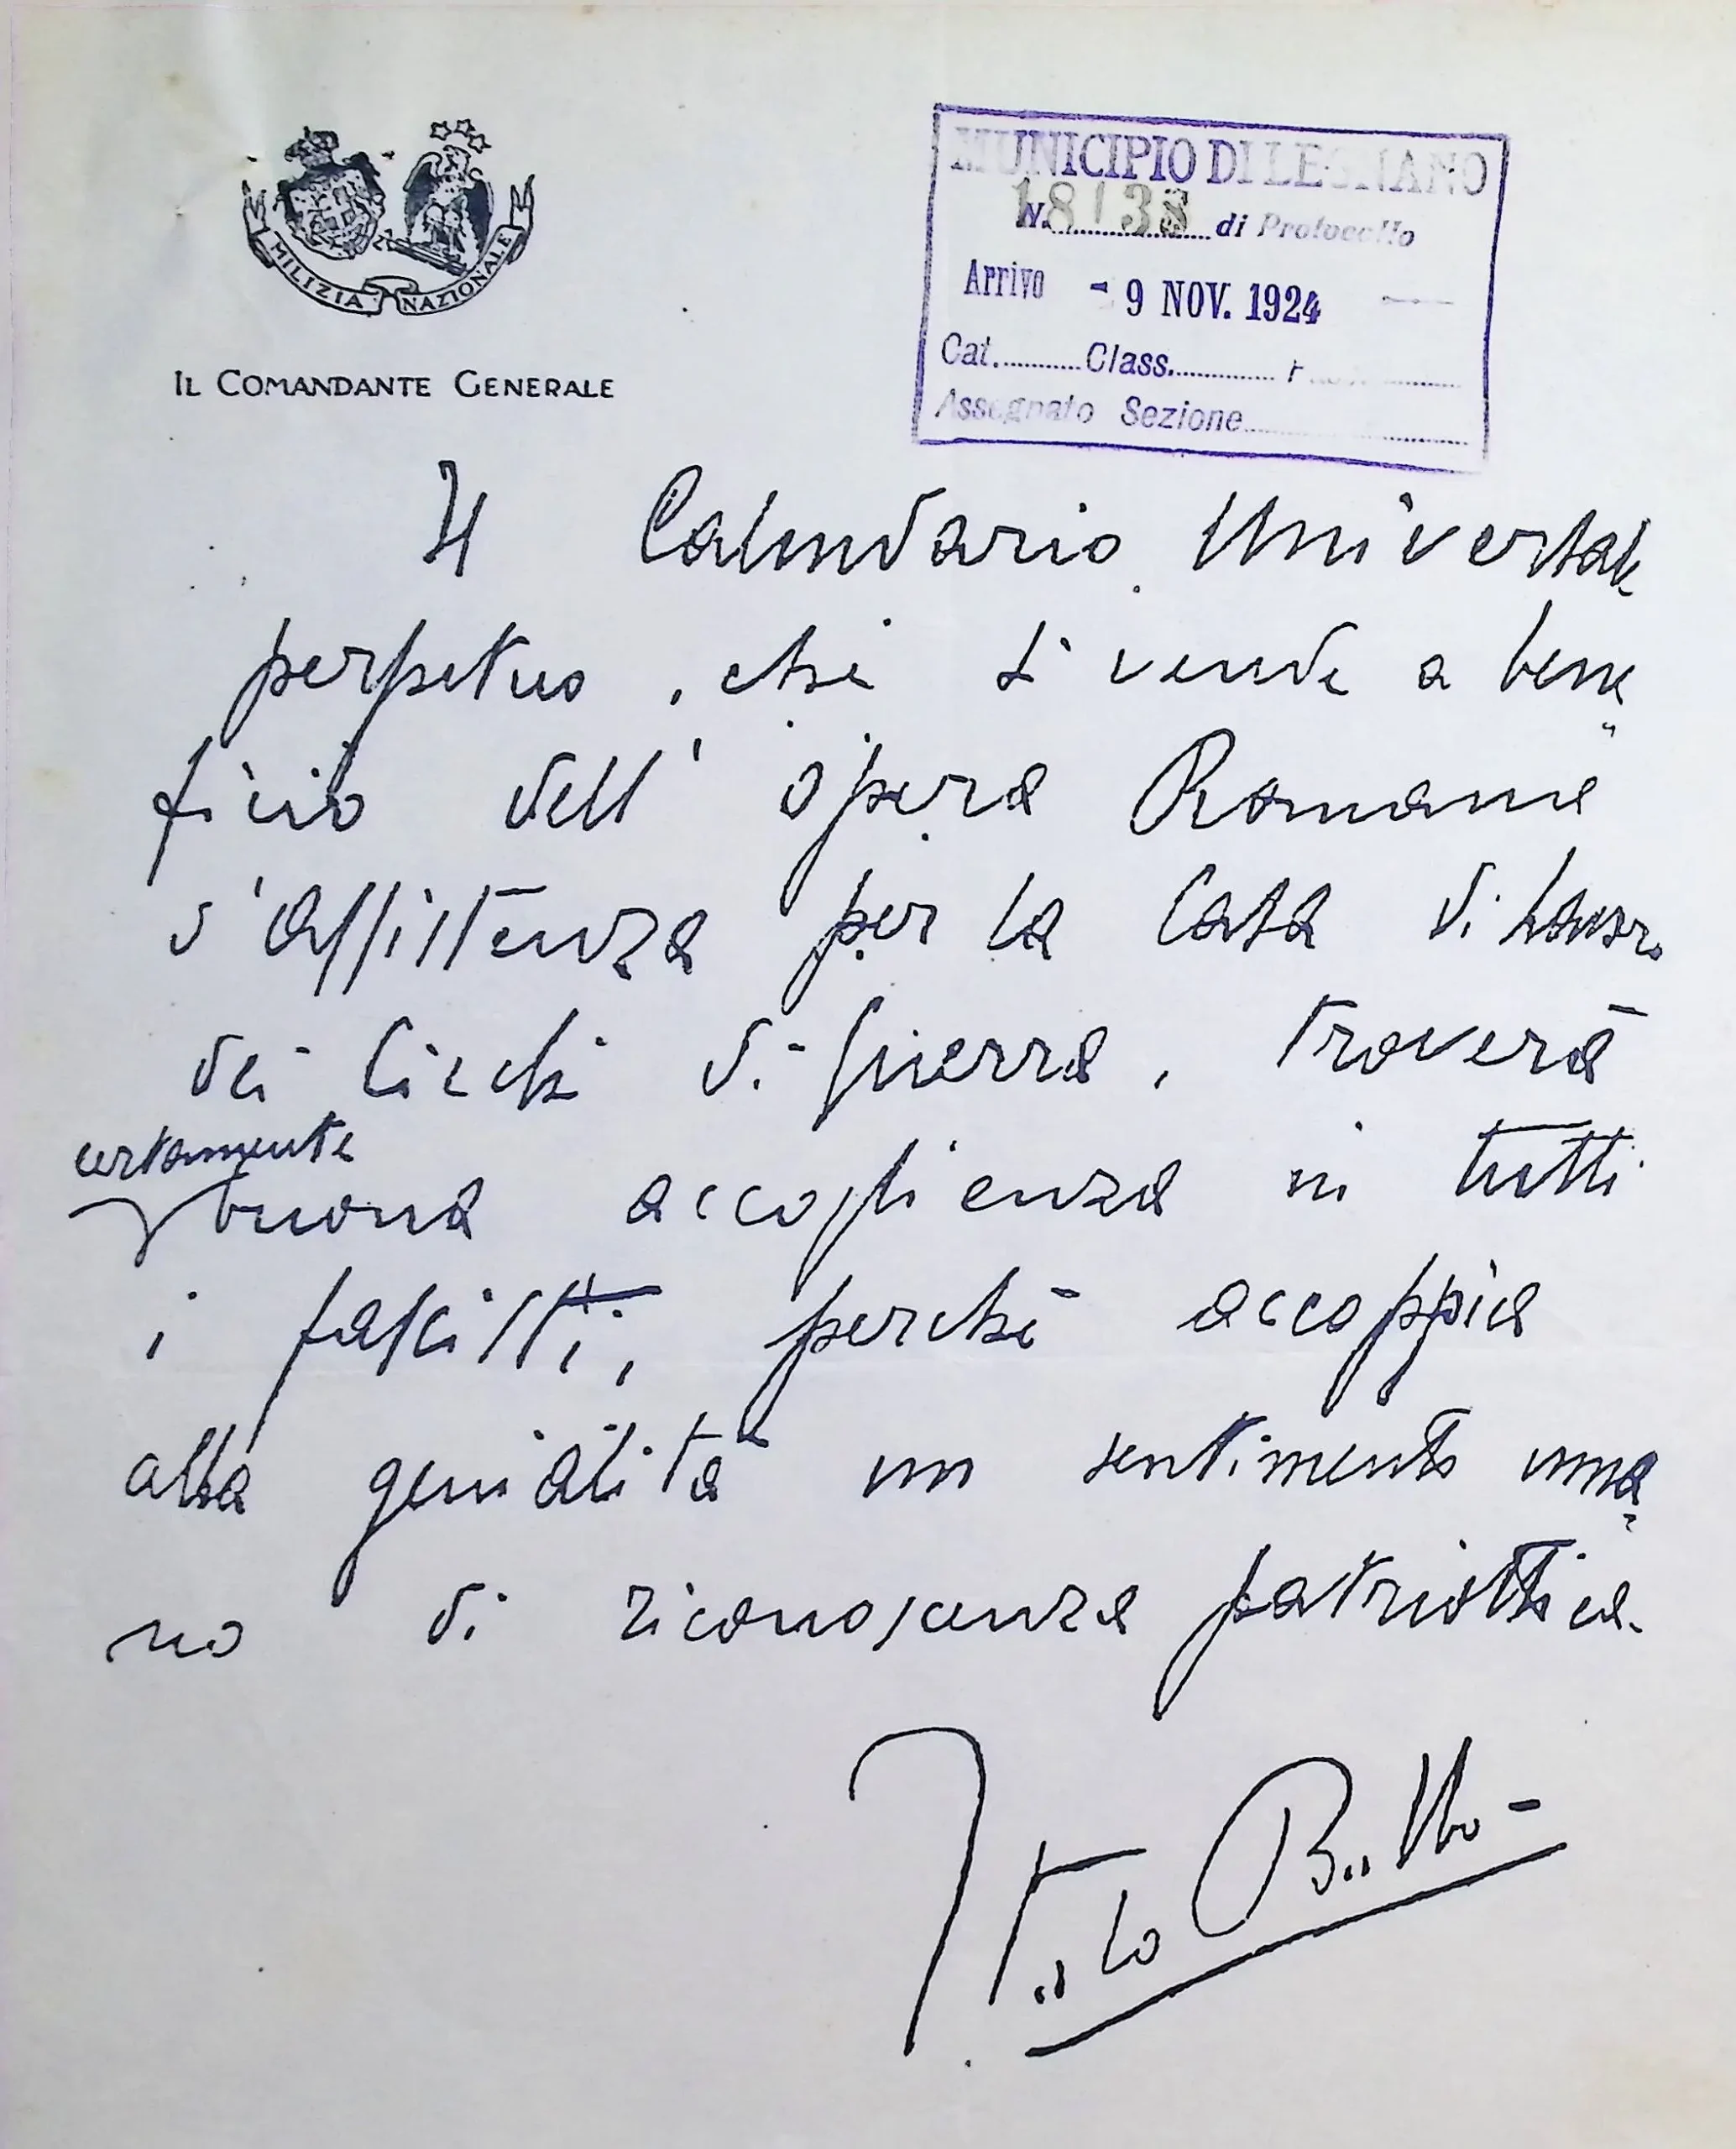 MILIZIA NAZIONALE
IL COMANDANTE GENERALE
MUNICIPIO DI LEGNANO
N. 18138 di Protocollo
Arrivo - 9 NOV. 1924
Cat. Class.
Assegnato Sezione
Il Calendario Universale
perpetuo, che si vende a bene
ficio dell'opera Romana
d'Assistenza per la Casa di Lavoro
dei Ciechi di Guerra, troverà
certamente
buona accoglienza in tutti
i fascisti, perchè accoppia
alla genialità un sentimento uma
no di riconoscenza patriottica.
Italo Balbo